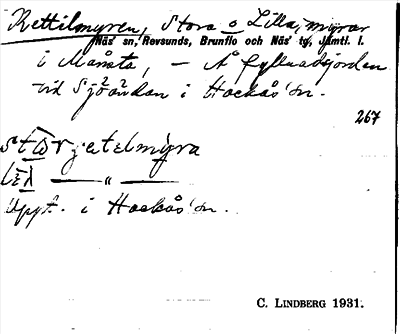 Kettilmyren, Stora o Lilla, myrar
Näs' sn, Revsunds, Brunflo och Näs' tg, Jämtl. l.
i Månsta, – Å fyllnadsjorden
vid Sjöändan i Hackås' sn.
267
myra
— „ —
Uppt. i Hackås' sn.
C. LINDBERG 1931.